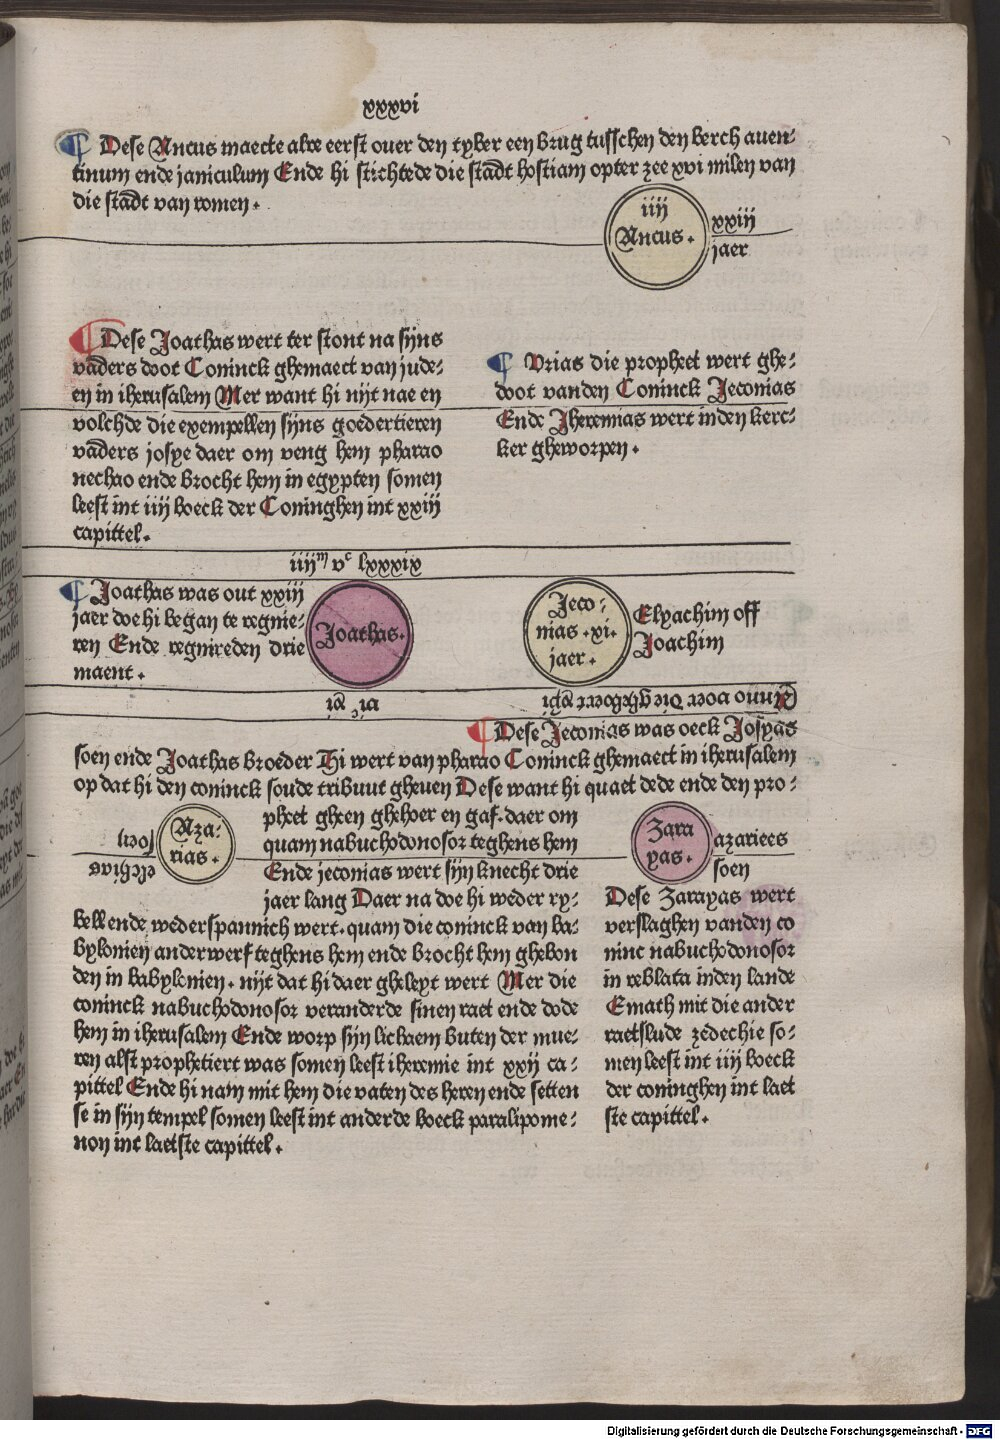 xxxvi
¶ Dese Ancus maecte alre eerst ouer den tyber een brug tusschen den berch auen-
tinum ende janiculum Ende hi stichtede die stadt hostiam opter zee xvi milen van
die stadt van romen.
iiij
Ancus.
xxiij
jaer
¶ Dese Joathas wert ter stont na sijns
vaders doot Coninck ghemaect van jude-
en in iherusalem Mer want hi nijt nae en
volchde die exempellen sijns goedertieren
vaders josye daer om veng hem pharao
nechao ende brocht hem in egypten somen
leest int iiij boeck der Coninghen int xxiij
capittel.
¶ Vrias die propheet wert ghe-
doot vanden Coninck Jeconias
Ende Jheremias wert inden kerc-
ker gheworpen.
iiijm vc lxxxix
¶ Joathas was out xxiij
jaer doe hi began te regnie-
ren Ende regnireden drie
maent.
Joathas.
Jeco-
nias .xi.
jaer.
Elyachim off
Joachim
Anno voer die gheboert xpi
vic xi
¶ Dese Jeconias was oeck Josyas
soen ende Joathas broeder Hi wert van pharao Coninck ghemaect in iherusalem
op dat hi den coninck soude tribuut gheuen Dese want hi quaet dede ende den pro-
pheet gheen ghehoer en gaf. daer om
quam nabuchodonosor teghens hem
Ende jeconias wert sijn knecht drie
jaer lang Daer na doe hi weder ry-
bell ende wederspannich wert. quam die coninck van ba-
bylonien anderwerf teghens hem ende brocht hem ghebon
den in babylonien. nijt dat hi daer gheleyt wert Mer die
coninck nabuchodonosor veranderde sinen raet ende dode
hem in iherusalem Ende worp sijn lichaem buten der mue-
ren alst prophetiert was somen leest iheremie int xxij ca-
pittel Ende hi nam mit hem die vaten des heren ende setten
se in sijn tempel somen leest int anderde boeck paralipome-
non int laetste capittel.
Aza-
rias.
elchias
soen
Zara
yas.
azariees
soen
Dese Zarayas wert
verslaghen vanden co
ninc nabuchodonosor
in reblata inden lande
Emath mit die ander
raetslude zedechie so-
men leest int iiij boeck
der coninghen int laet
ste capittel.
Digitalisierung gefördert durch die Deutsche Forschungsgemeinschaft - DFG